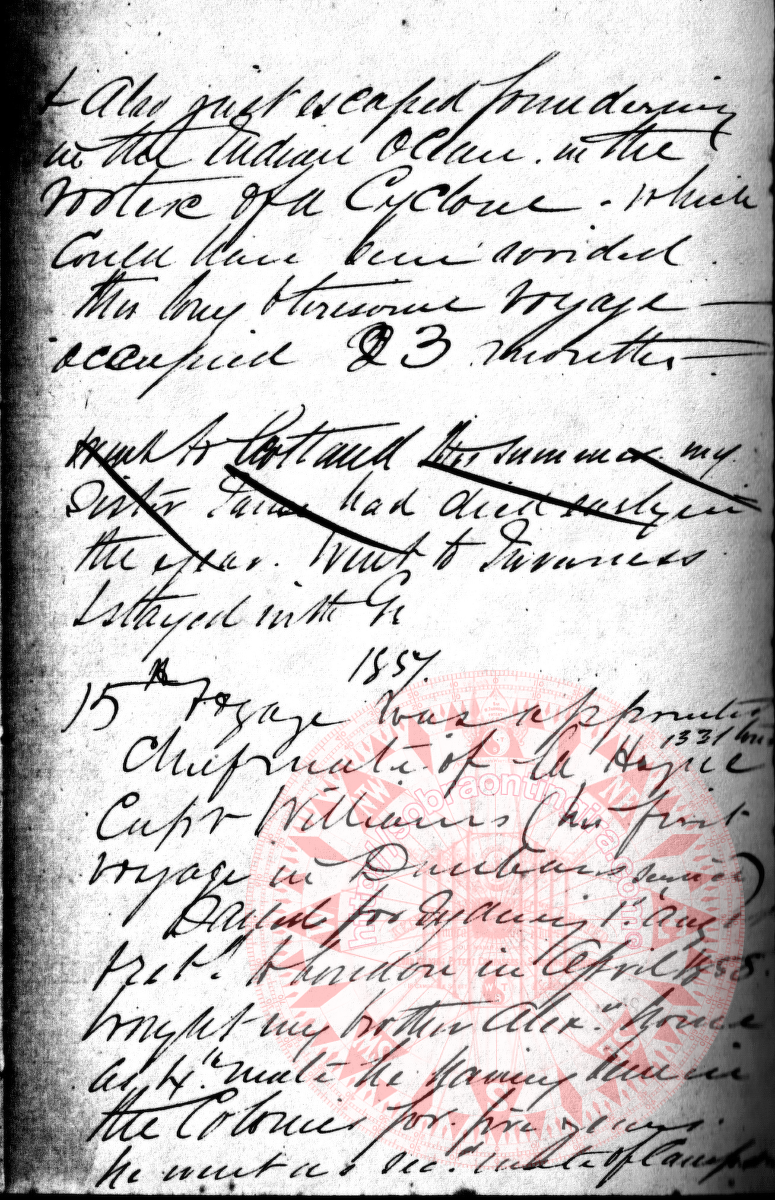 & Also just escaped foundering
in the Indian Ocean. in the
vortex of a Cyclone - which
Could have been avoided.
this long & tiresome voyage —
occupied 23 months.
Went to Scotland this summer my
Sister had died early in
the year. Went to Inverness
& stayed with
1857
15th Voyage was appointed
1331 tons
Chief mate of La Hogue
Capt Williams (his first
voyage in Dunbars service)
Sailed for Sydney 1st Augt
& retd. to London in April 1858.
brought my brother Alexr. home
as 4th mate he having been in
the Colonies for five years.
he went as sec. mate of